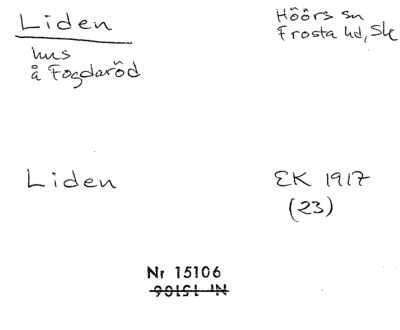 Liden
Höörs sn
Frosta hd, Sk
hus
å Fogdaröd
Liden
EK 1917
(23)
Nr 15106
Nr 15106